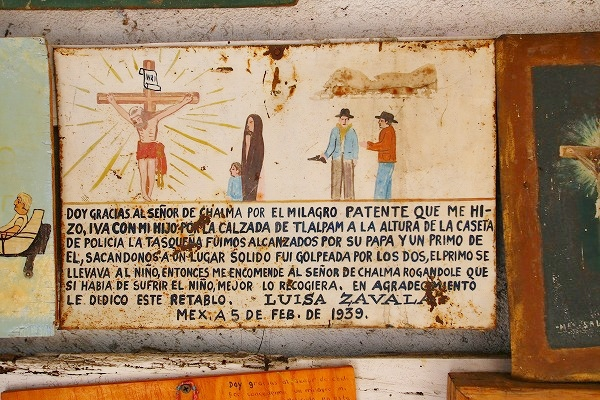 INRI
DOY GRACIAS AL SEÑOR DE CHALMA POR EL MILAGRO PATENTE QUE ME HI-
ZO, IVA CON MI HIJO POR LA CALZADA DE TLALPAM A LA ALTURA DE LA CASETA
DE POLICIA LA TASQUEÑA FUIMOS ALCANZADOS POR SU PAPA Y UN PRIMO DE
EL, SACANDONOS A UN LUGAR SOLIDO FUI GOLPEADA POR LOS DOS, EL PRIMO SE
LLEVABA AL NIÑO, ENTONCES ME ENCOMENDE AL SEÑOR DE CHALMA ROGANDOLE QUE
SI HABIA DE SUFRIR EL NIÑO, MEJOR LO RECOGIERA. EN AGRADECIMIENTO
LE DEDICO ESTE RETABLO. LUISA ZAVALA
MEX. A 5 DE FEB. DE 1939.
Doy gracias al